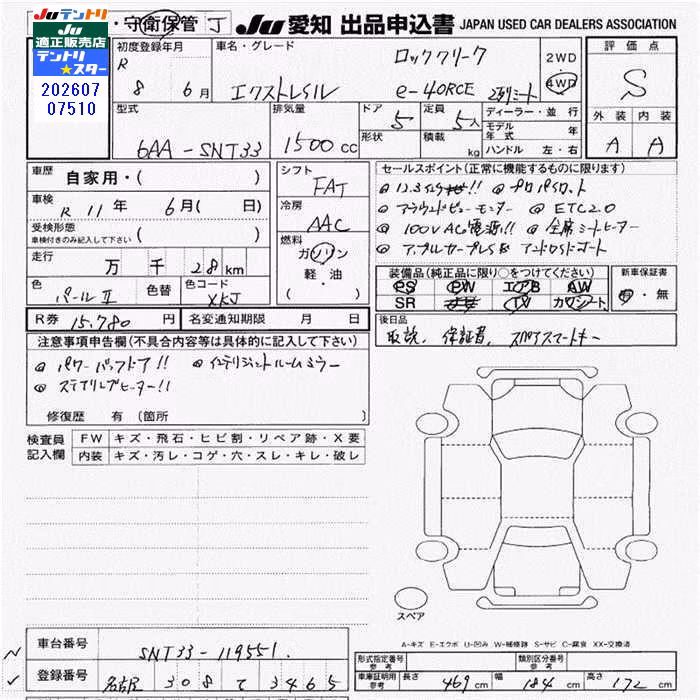 ・守衛保管 J
JU 愛知 出品申込書 JAPAN USED CAR DEALERS ASSOCIATION
JUテントリ
JU
適正販売店
テントリ
★スター
202607
07510
初度登録年月
R 8年 6月
車名・グレード
ロッククリーク
エクストレイル e-4ORCE 2列シート
2WD
4WD
評価点
S
外装 内装
A A
型式
6AA-SNT33
排気量
1500 cc
ドア
5
形状
定員
5人
積載
kg
ディーラー・並行
モデル年式 年
ハンドル 左・右
車歴
自家用・( )
車検
R 11年 6月( 日)
受検形態
車検付きのみ記入して下さい ( )
走行
万 千 28km
色
パールⅡ
色替
色コード
XKJ
シフト
FAT
冷房
AAC
燃料
ガソリン
軽・油
( )
セールスポイント(正常に機能するものに限ります)
◎ 12.3インチナビ!! ◎ プロパイロット
◎ アラウンドビューモニター ◎ ETC2.0
◎ 100V AC電源!! ◎ 全席シートヒーター
◎ アップルカープレイ& アンドロイドオート
装備品(純正品に限り○をつけてください)
PS PW エアB AW
SR ナビ TV カワシート
新車保証書
有・無
R券 15,780 円
名変通知期限 月 日
後日品
取説、保証書、スペアスマートキー
注意事項申告欄(不具合内容等は具体的に記入して下さい)
◎ パワーバックドア!! ◎ インテリジェントルームミラー
◎ ステアリングヒーター!!
修復歴 有 (箇所 )
検査員
記入欄
FW キズ・飛石・ヒビ割・リペア跡・X要
内装 キズ・汚レ・コゲ・穴・スレ・キレ・破レ
スペア
A-キズ E-エクボ U-凹み W-補修跡 S-サビ C-腐食 XX-交換済
車台番号
SNT33-119551
登録番号
名古屋 308 て 3465
形式指定番号
参考
類別区分番号
参考
車庫証明用
参考
長さ 469 cm 幅 184 cm 高さ 172 cm